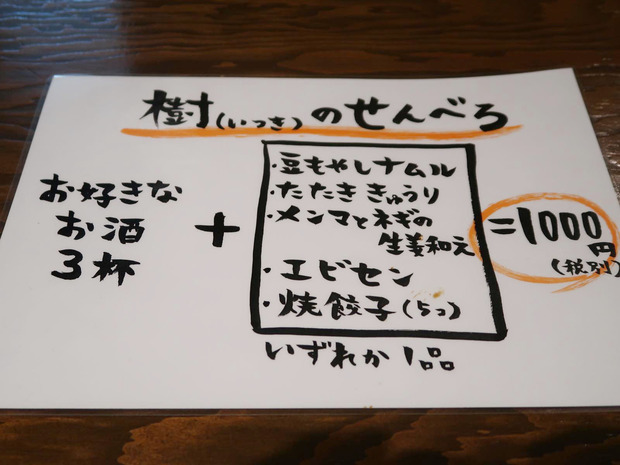 樹(いつき)のせんべろ
お好きな
お酒
3杯
+
・豆もやしナムル
・たたききゅうり
・メンマとネギの
生姜和え
・エビセン
・焼餃子(5コ)
いずれか1品
=1000円
(税別)